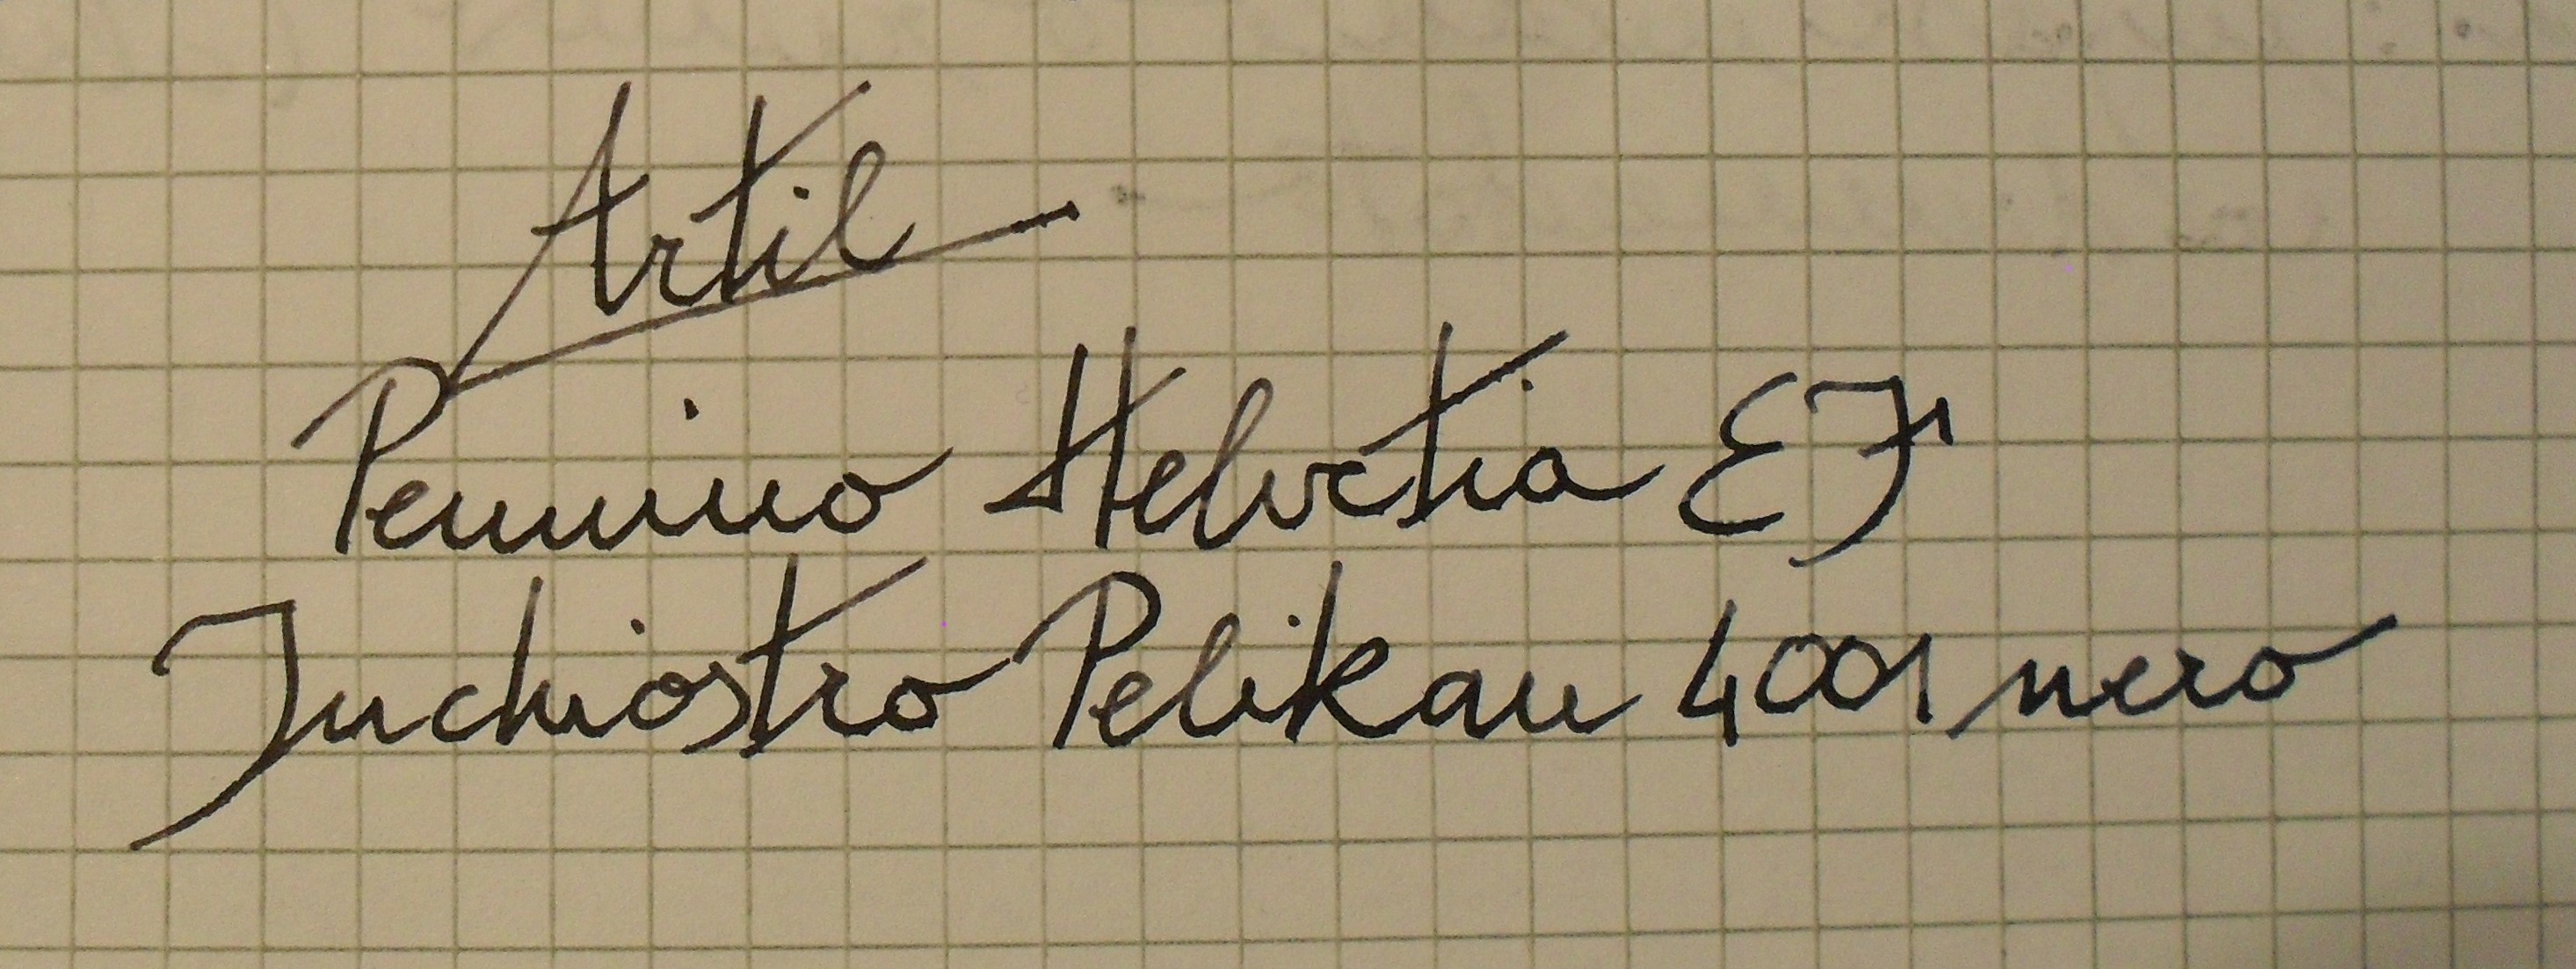 Artil
Pennino Helvetia EF
Inchiostro Pelikan 4001 nero